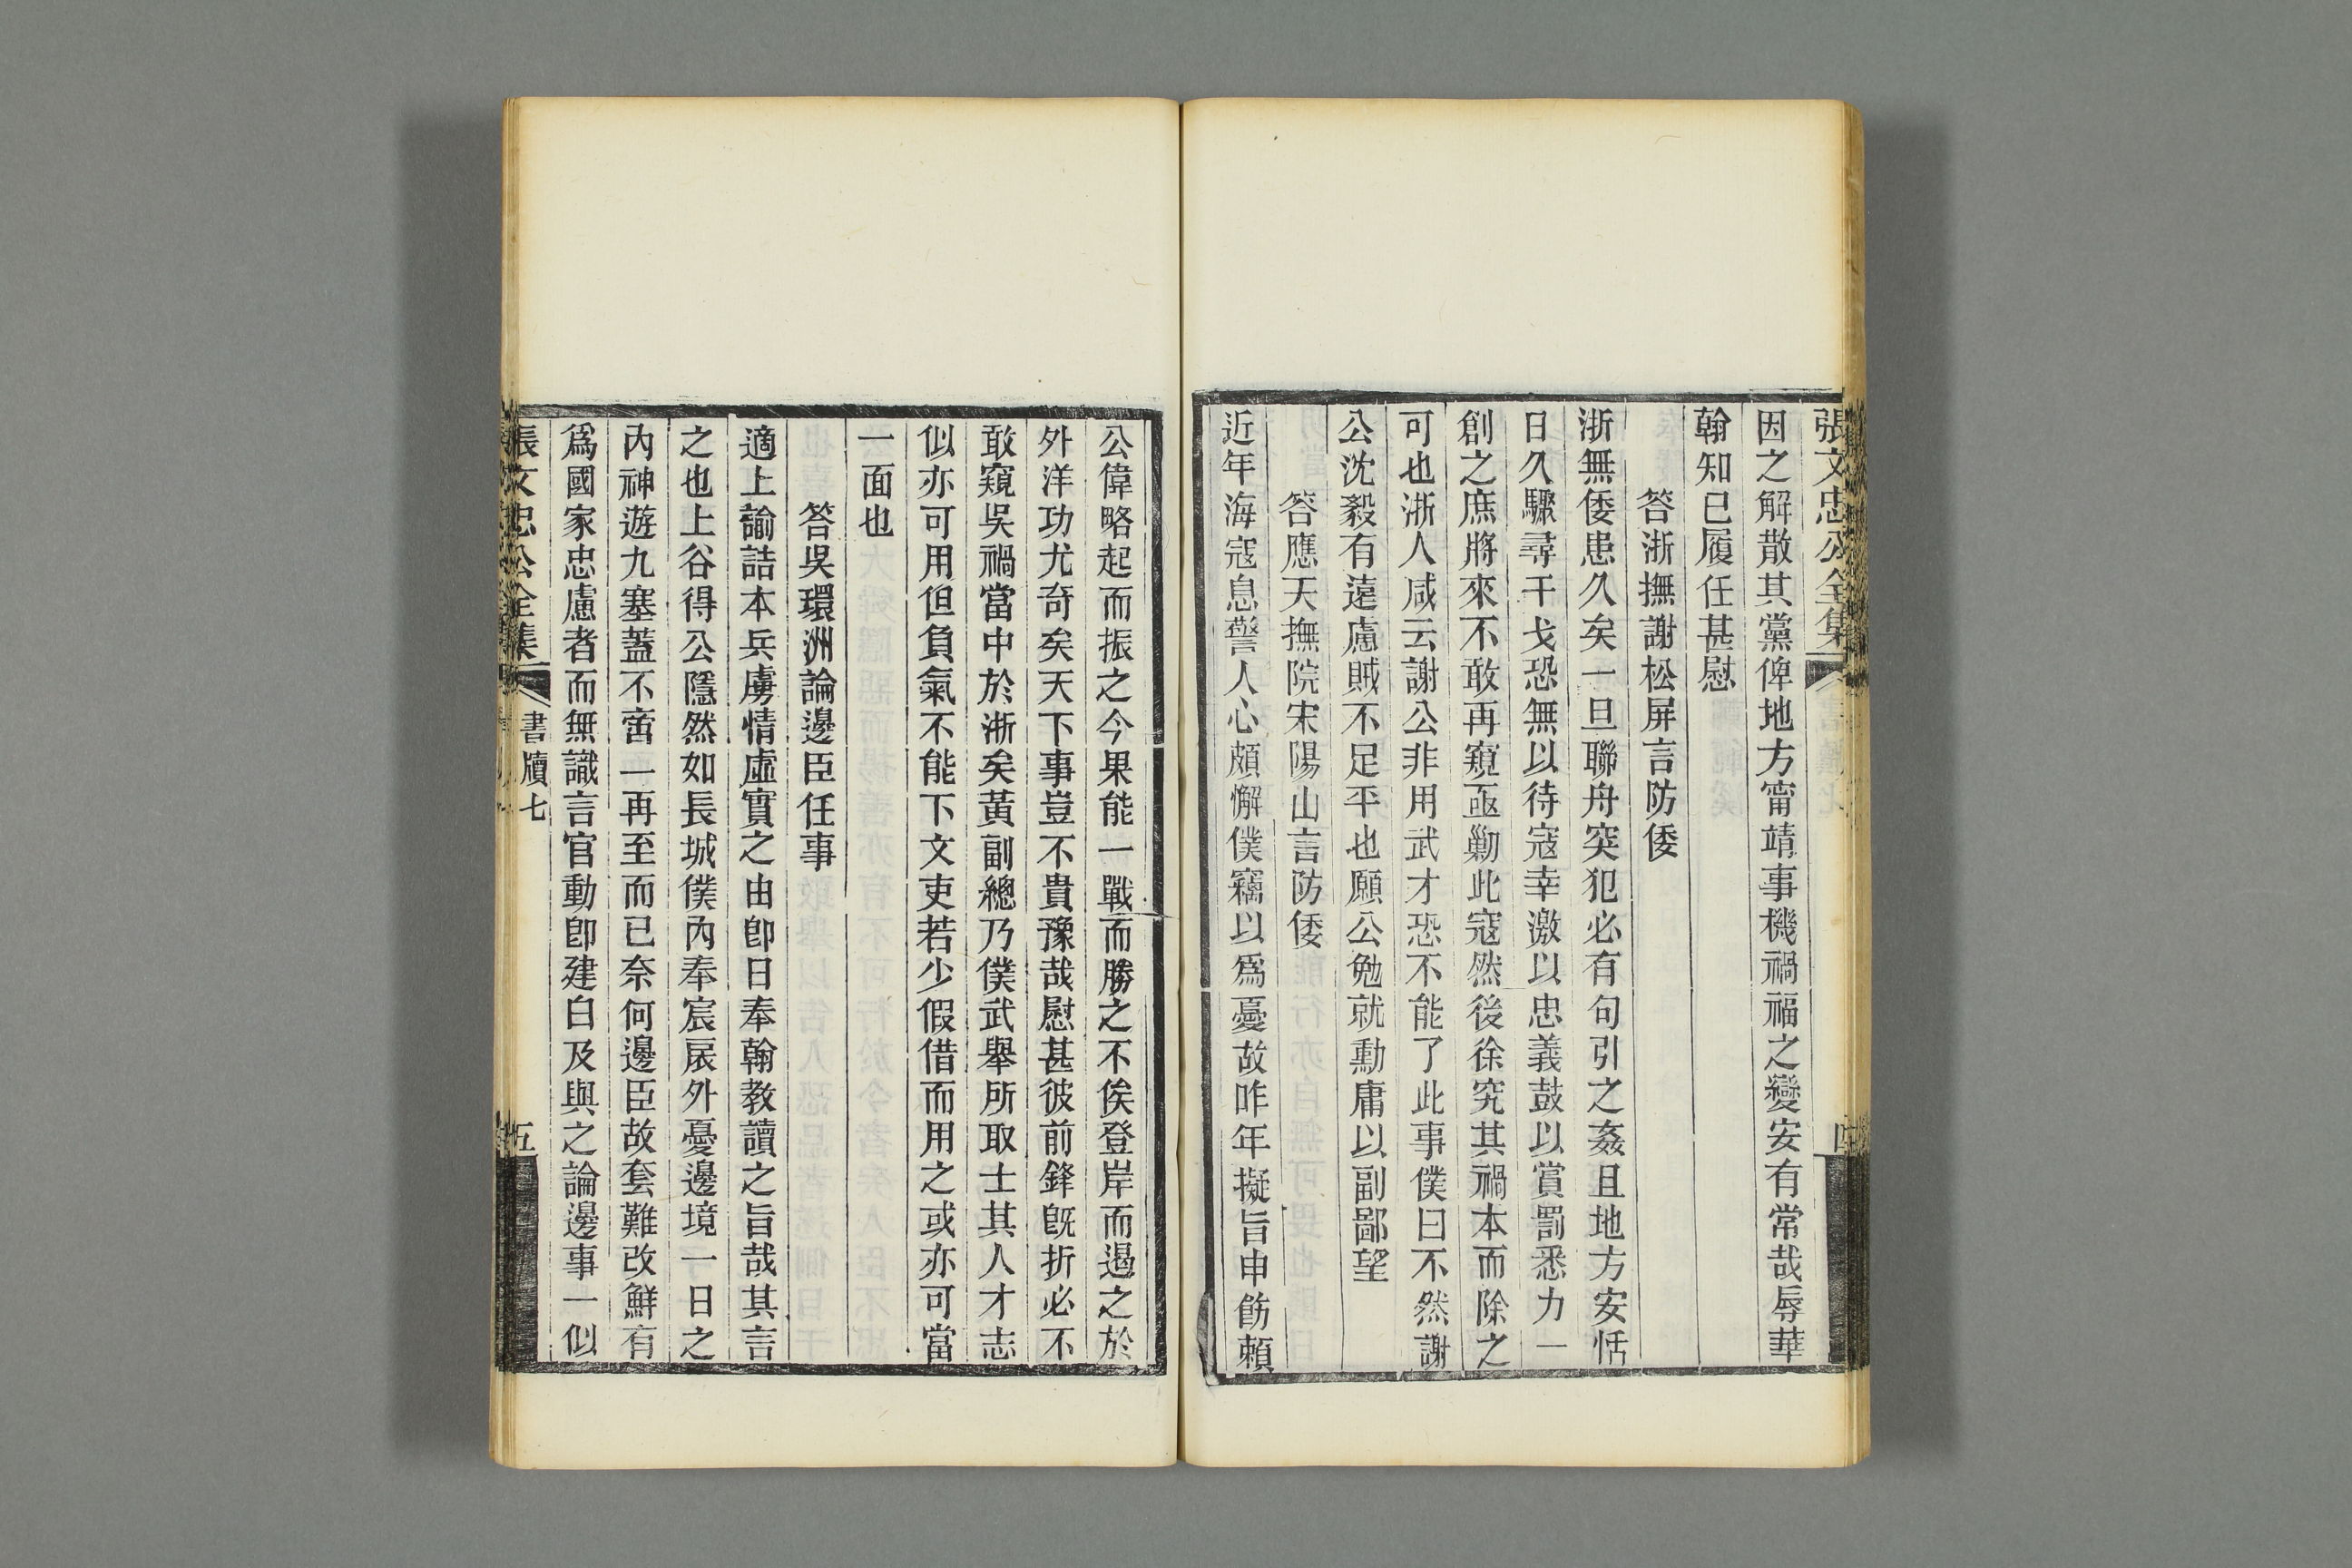 張文忠公全集
四
因之解散其黨俾地方甯靖事機禍福之變安有常哉辱華
翰知已履任甚慰
答浙撫謝松屏言防倭
浙無倭患久矣一旦聯舟突犯必有句引之姦且地方安恬
日久驟尋干戈恐無以待寇幸激以忠義鼓以賞罰悉力一
創之庶將來不敢再窺亟勦此寇然後徐究其禍本而除之
可也浙人咸云謝公非用武才恐不能了此事僕曰不然謝
公沈毅有遠慮賊不足平也願公勉就勳庸以副鄙望
答應天撫院宋陽山言防倭
近年海寇息警人心頗懈僕竊以爲憂故昨年擬旨申飭賴
公偉略起而振之今果能一戰而勝之不俟登岸而遏之於
外洋功尤奇矣天下事豈不貴豫哉慰甚彼前鋒旣折必不
敢窺吳禍當中於浙矣黃副總乃僕武舉所取士其人才志
似亦可用但負氣不能下文吏若少假借而用之或亦可當
一面也
答吳環洲論邊臣任事
適上諭詰本兵虜情虛實之由卽日奉翰教讀之旨哉其言
之也上谷得公隱然如長城僕內奉宸扆外憂邊境一日之
內神遊九塞蓋不啻一再至而已奈何邊臣故套難改鮮有
爲國家忠慮者而無識言官動卽建白及與之論邊事一似
張文忠公全集
書牘七
五